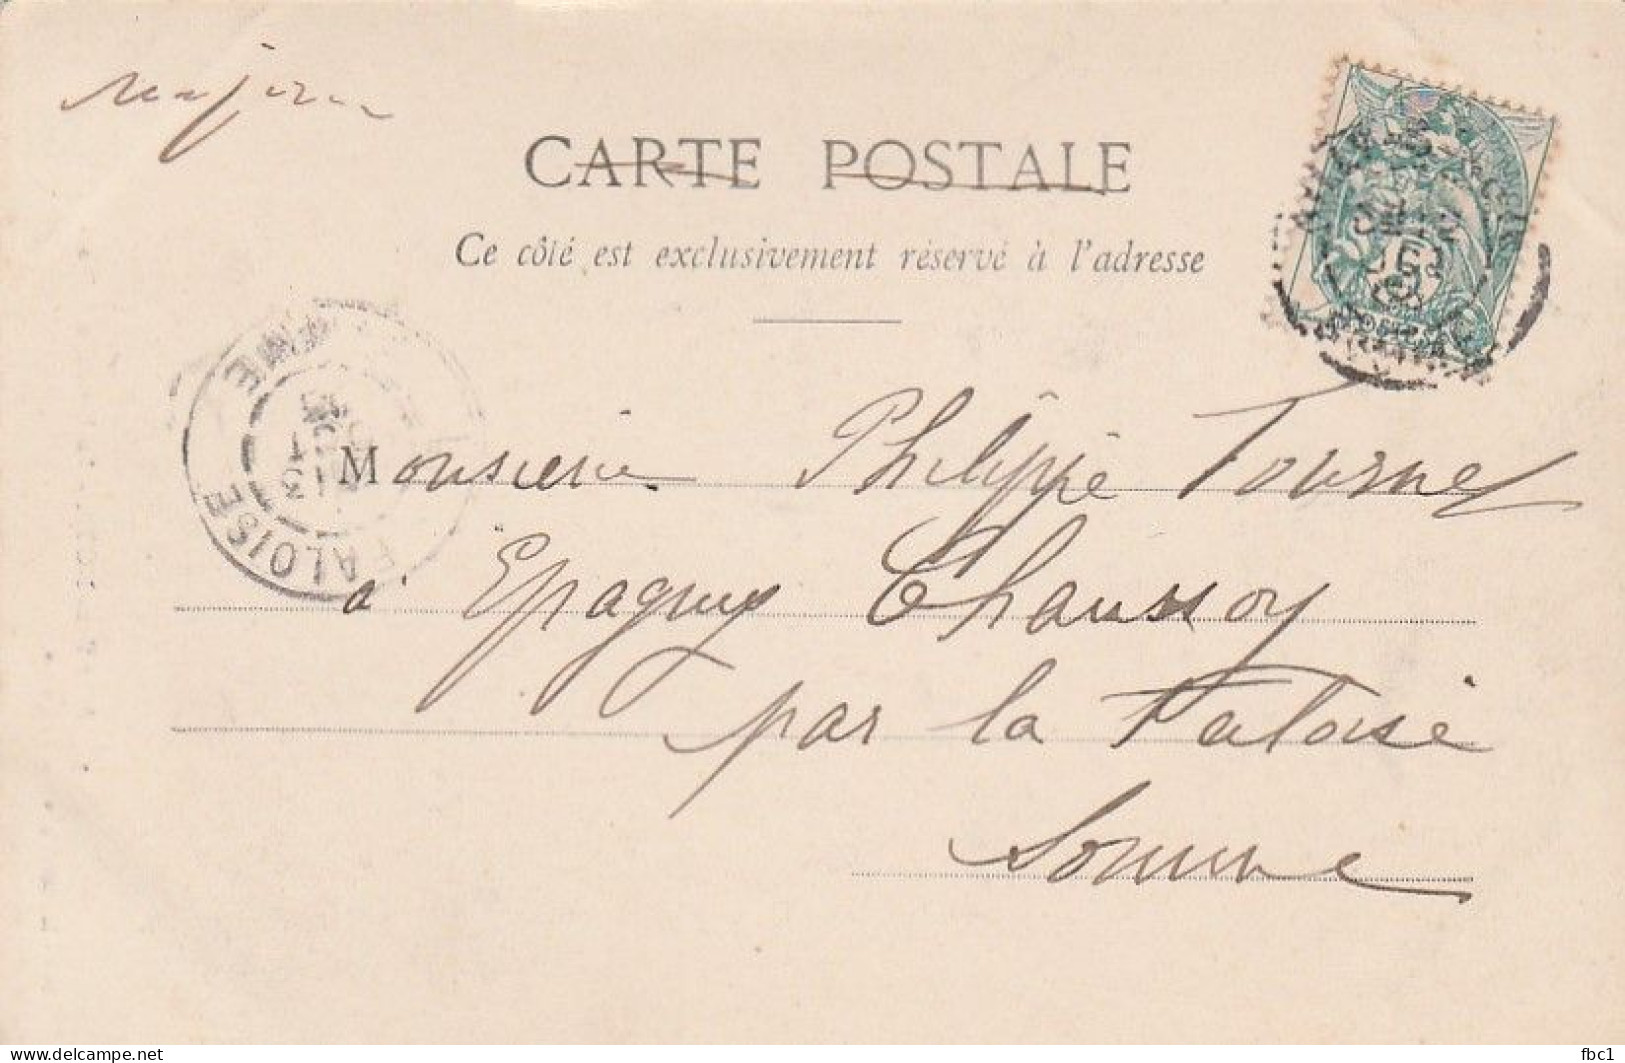 CARTE POSTALE
Ce côté est exclusivement réservé à l'adresse
FALOISE
Monsieur Philippe Tourney
à Epagny Chaussoy
par la Faloise
Somme
delcampe.net
fbc1